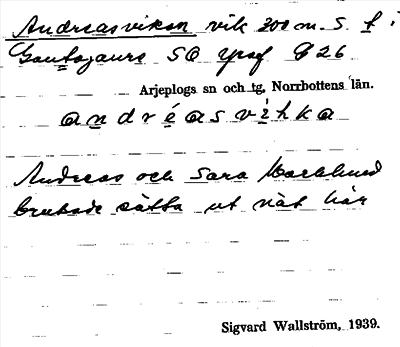 Andreasviken vik 200 m. S. f
Gautojaure SO Ypsf 926
Arjeplogs sn och tg, Norrbottens län.
andréasvihka
Andreas och Sara Marklund
brukade sätta ut nät här
Sigvard Wallström, 1939.